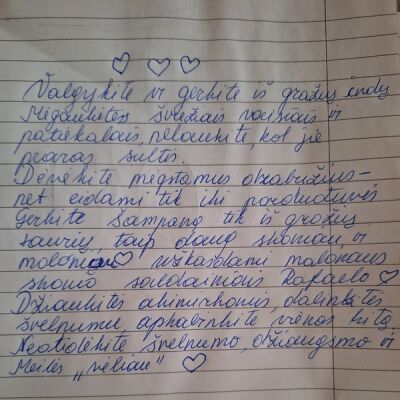 ♡ ♡ ♡
Valgykite ir gerkite iš gražių indų
Mėgaukitės šviežiais vaisiais ir
patiekalais, nelaukite, kol jie
praras sultis.
Dėvėkite mėgstamus drabužius-
net eidami tik iki parduotuvės
Gerkite šampaną tik iš gražių
taurių, taip daug skoniau, ir
maloniau♡ užkasdami malonaus
skonio saldainiais Rafaelo ♡
Džiaukitės akimirkomis, dalinkitės
švelnumu, apkabinkite vienas kitą
Neatidėkite švelnumo, džiaugsmo ir
Meilės „vėliau" ♡